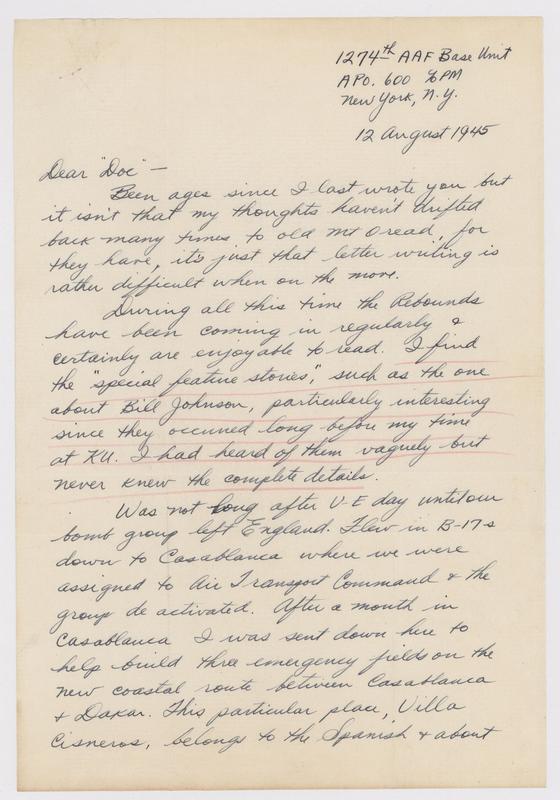 1274th AAF Base Unit
APO. 600 % PM
New York, N.Y.
12 August 1945
Dear "Doc" —
Been ages since I last wrote you but
it isn't that my thoughts haven't drifted
back many times to old Mt Oread, for
they have, it's just that letter writing is
rather difficult when on the move.
During all this time the Rebounds
have been coming in regularly &
certainly are enjoyable to read. I find
the "special feature stories", such as the one
about Bill Johnson, particularly interesting
since they occurred long before my time
at KU. I had heard of them vaguely but
never knew the complete details.
Was not long after V-E day until our
bomb group left England. Flew in B-17s
down to Casablanca where we were
assigned to Air Transport Command & the
group de activated. After a month in
Casablanca I was sent down here to
help build three emergency fields on the
new coastal route between Casablanca
& Dakar. This particular place, Villa
Cisneros, belongs to the Spanish & about